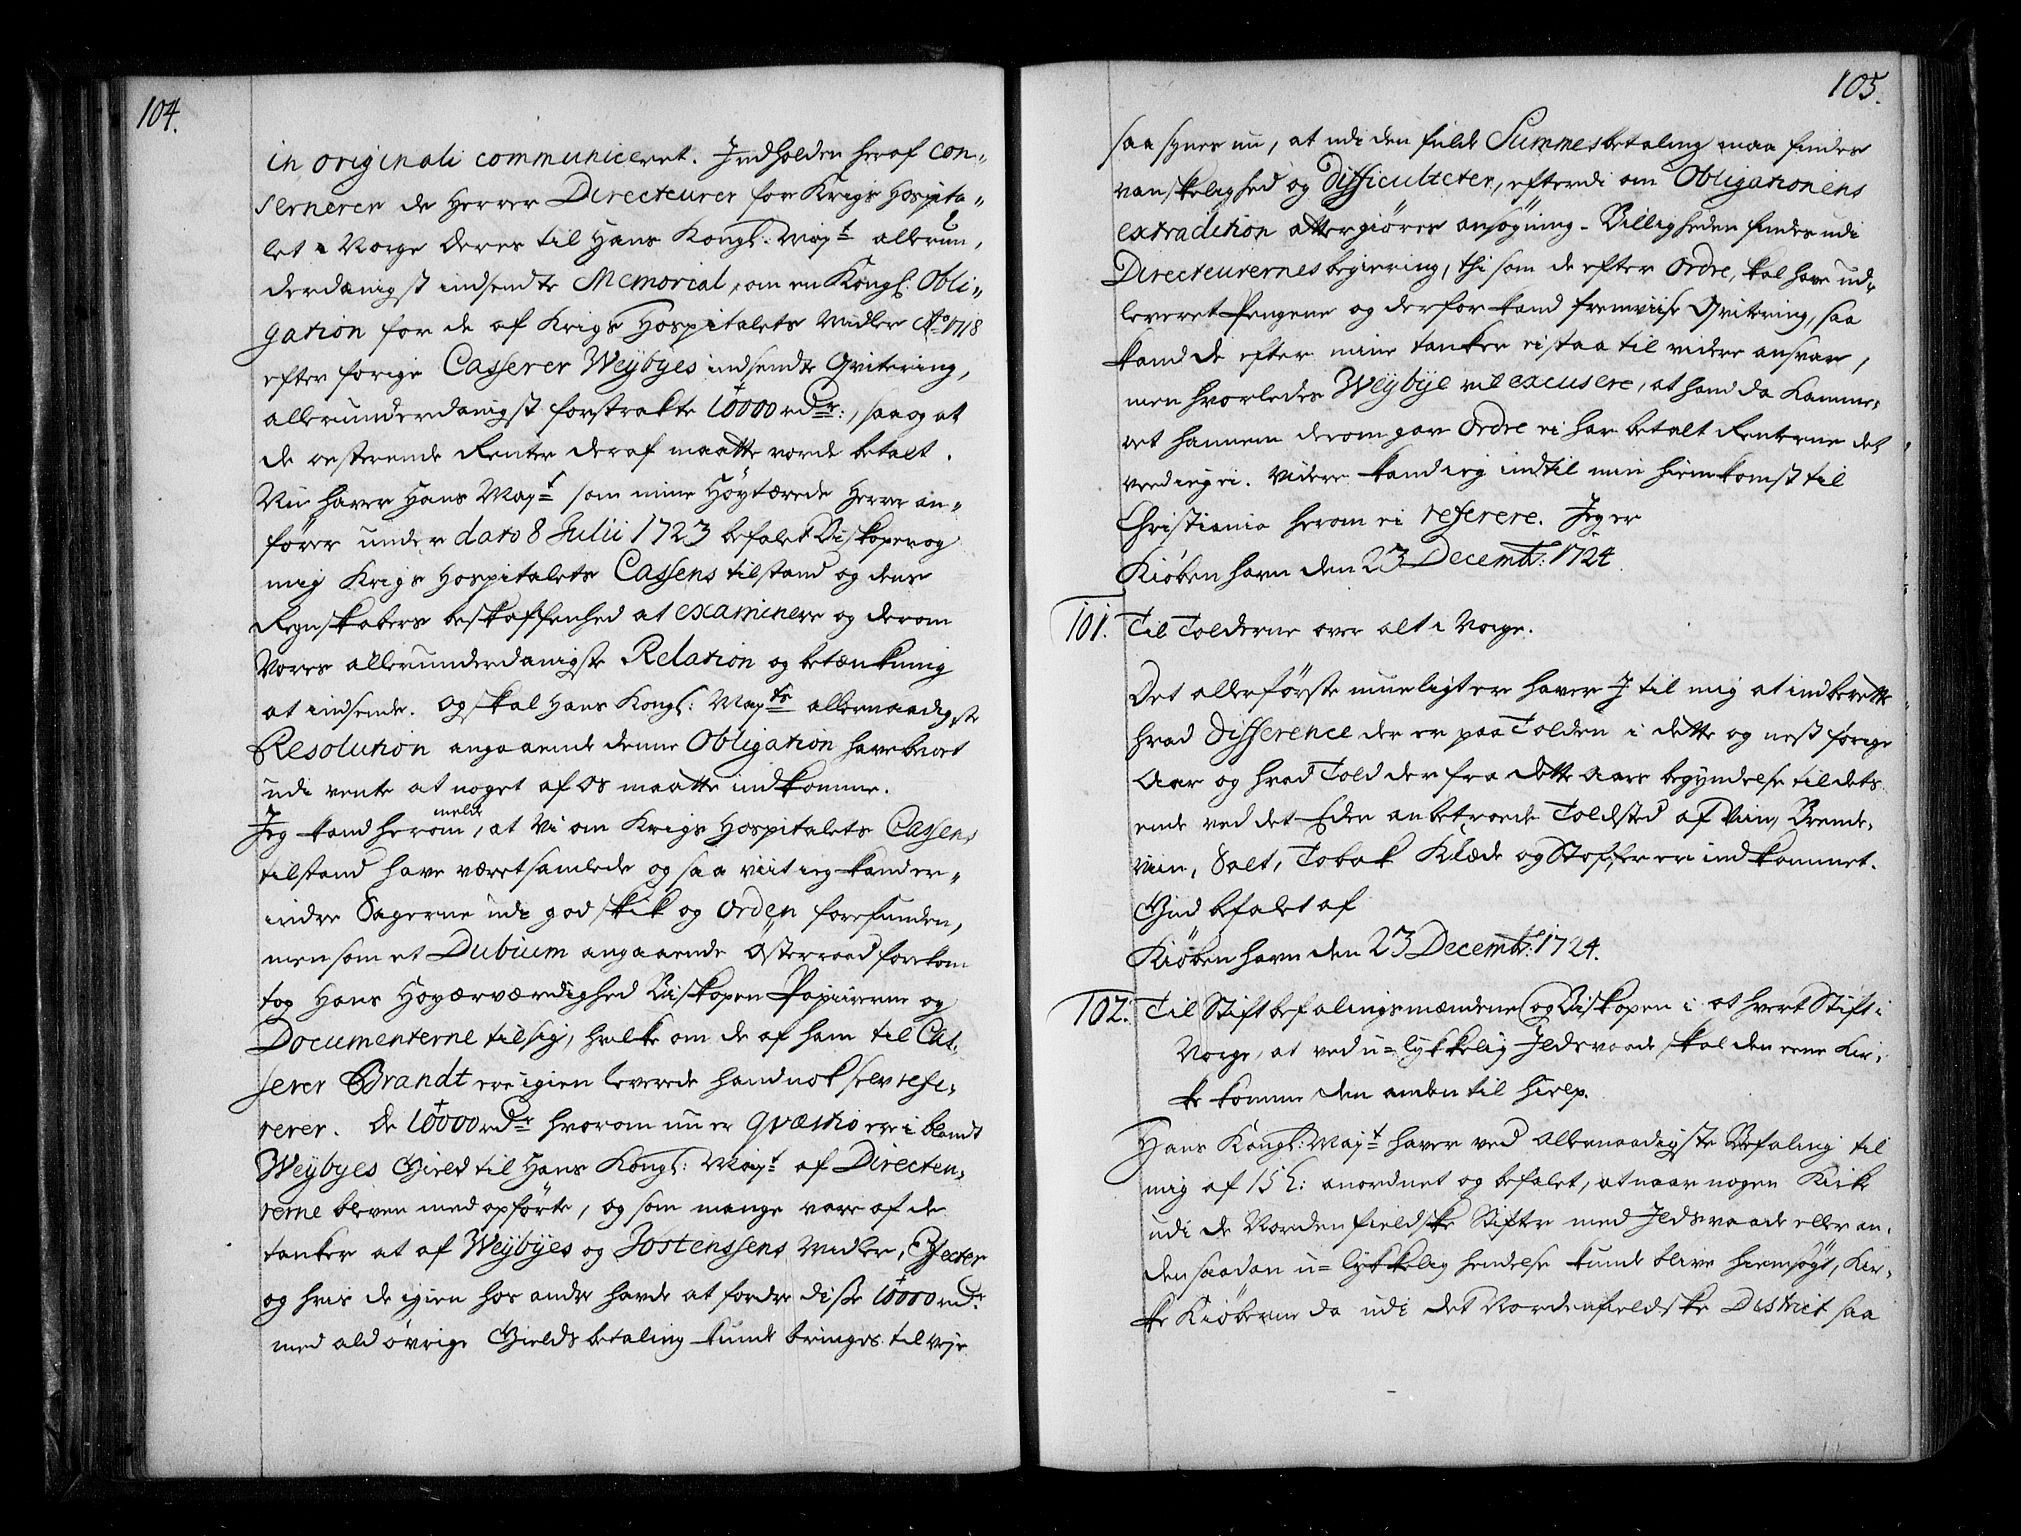 104.
in originali communiceret. Indholden heraf con-
cerneren de Herrer Directeurer for Krigs Hospita-
let i Norge deres til Hans Kongl: Mayt allerun-
derdanigst indsendte Memorial, om en Kongl: Obli-
gation for de af Krigs Hospitalets Midler Ao 1718
efter forige Casserer Weÿbyes indsendte Qvitering,
allerunderdanigst forstrakte 10000 rdr:, saa og at
de resterende Renter deraf maatte vorde betalt.
Nu haver Hans Mayt som mine Høytærede Herrer an-
fører under dato 8 Julii 1723 befalet Biskopen og
mig Krigs Hospitalets Cassens tilstand og dens
Regnskabers beskaffenhed at examinere og derom
Vores allerunderdanigste Relation og betænkning
at indsende. Og skal Hans Kongl: Mayts allernaadigste
Resolution angaaende denne Obligation have beroet
udi vente at noget af os maatte indkomme.
Jeg kand herom melde, at Vi om Krigs Hospitalets Cassens
tilstand have været samlede og saa viit ieg kand er-
indre Sagerne udi god skik og Orden forefunden,
men som et Dubium angaaende Østerraad forekom
tog Hans Høyærværdighed Biskopen Papirerne og
Documenterne til sig, hvilke om de af ham til Cas-
serer Brandt ere igien leverede hand nok selv refe-
rerer. De 10000 rdr hvorom nu er qvæstio ere i blandt
Weÿbyes Gield til Hans Kongl: Mayt af Directeu-
rerne bleven med opførte, og som mange vare af de
tanker at af Weÿbÿes og Jostenssens Midler, Effecter
og hvis de igien hos andre havde at fordre disse 10000 rdr
med ald øvrige Gields betaling kunde bringes til veje
105.
saa synes nu, at udi den fulde Summes betaling maa findes
vanskelighed og difficulteter, efterdi om Obligationens
extradition attergiøres ansøgning. Billigheden findes udi
Directeurernes begiering, thi som de efter Ordre, skal have ud-
leveret Pengene og derfor kand fremviise Qvitering, saa
kand de efter mine tanker ei staa til videre ansvar,
men hvorledes Weÿbÿe vil excusere, at hand da Kamme-
ret hannem derom gav Ordre ei har betalt Renterne det
veed ieg ei. Videre kand ieg indtil min hiemkomst til
Christiania herom ei referere. Jeg er
Kiøbenhavn den 23 Decembr: 1724
101. Til Tolderne over alt i Norge.
Det allerførste mueligt er haver I til mig at indberette
hvad Difference der er paa Tolden i dette og nest forige
Aar og hvad Told der fra dette Aars begyndelse til dets
ende ved det Eder anbetroede Toldsted af Viin, Brende-
viin, Salt, Tobak Klæde og Stoffer er indkommet.
Gud befalet af
Kiøbenhavn den 23 Decembr: 1724.
102. Til Stiftbefalingsmændene og Biskopen i et hvert Stift i
Norge, at ved u-lykkelig Ildsvaade skal den eene Kir-
ke komme den anden til hielp.
Hans Kongl: Mayt haver ved allernaadigste Befaling til
mig af 15 h: anordnet og befalet, at naar nogen Kirke
udi de Nordenfieldske Stifter med Ildsvaade eller an-
den saadan u-lykkelig hendelse kunde blive hiemsøgt, Kir-
ke Kiøberne da udi det Nordenfieldske District saa